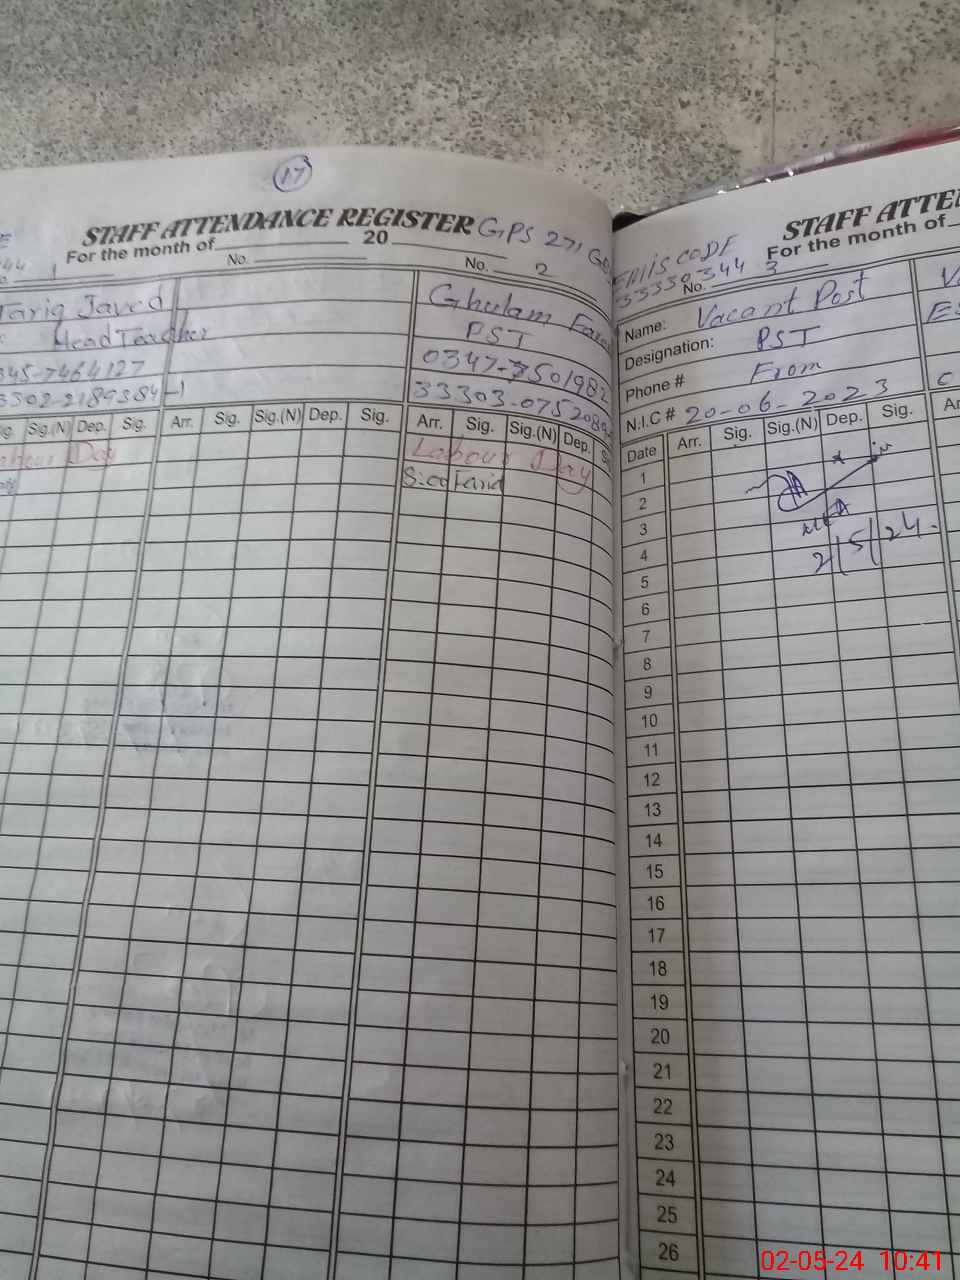 17
STAFF ATTENDANCE REGISTER GPS 271 G
For the month of 20
No. 1 No. No. 2
Tariq Javed
Head Teacher
345-7464127
3302-2189384-1
Ghulam Fa
PST
0347-7501982
33303-075208
Sig. Sig.(N) Dep. Sig. Arr. Sig. Sig.(N) Dep. Sig. Arr. Sig. Sig.(N) Dep. S
Labour Day Labour Day
Farid
STAFF ATTE
For the month of
EMIS CODE
33330344
No. 3
Name: Vacant Post
Designation: PST
Phone # From
N.I.C # 20-06-2023
Date Arr. Sig. Sig.(N) Dep. Sig. Ar
1
2
3
4
2/5/24
5
6
7
8
9
10
11
12
13
14
15
16
17
18
19
20
21
22
23
24
25
26
02-05-24 10:41